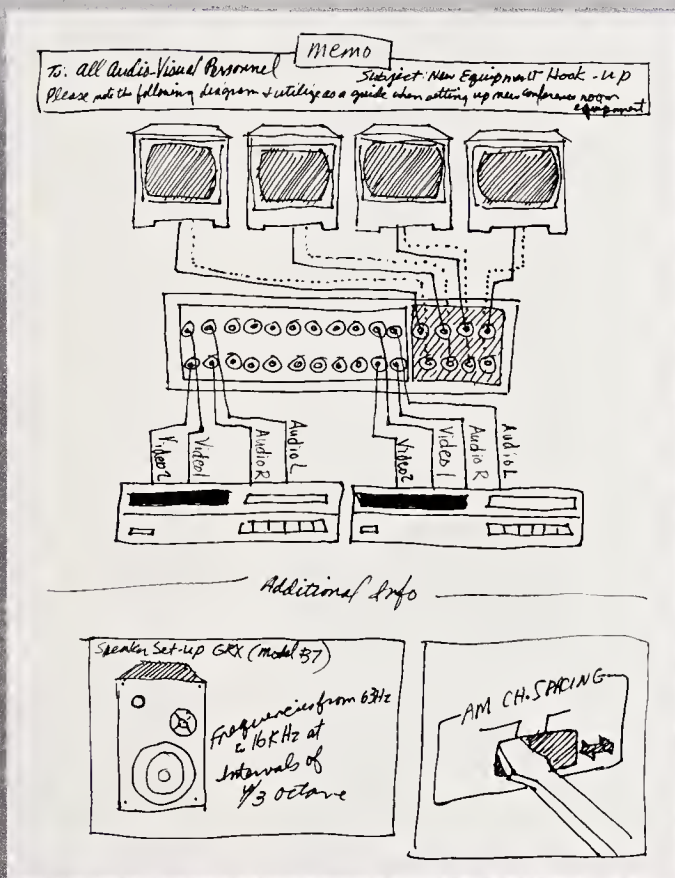 memo
To: All Audio-Visual Personnel
Subject: New Equipment Hook-up
Please note the following diagram & utilize as a guide when setting up new conference room
equipment
Video 2
Video 1
Audio R
Audio L
Video 2
Video 1
Audio R
Audio L
Additional Info
Speaker Set-up GRX (Model 37)
Frequencies from 63Hz
to 16KHz at
Intervals of
1/3 octave
AM CH. SPACING